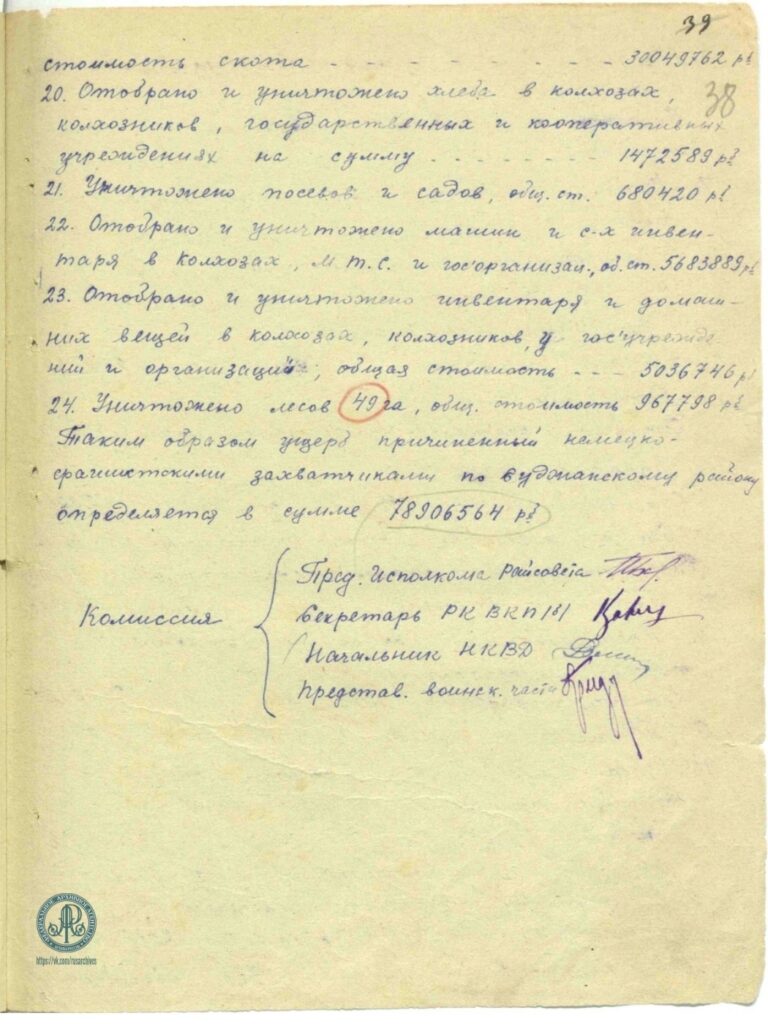 39
38
стоимость скота - - - - - - - - 30049762 р.
20. Отобрано и уничтожено хлеба в колхозах,
колхозников, государственных и кооперативных
учреждениях на сумму - - - - - - - 1472589 р.
21. Уничтожено посевов и садов, общ. ст. 680420 р.
22. Отобрано и уничтожено машин и с-х инвен-
таря в колхозах, М.Т.С. и гос'организац., об. ст. 5683889 р.
23. Отобрано и уничтожено инвентаря и домаш-
них вещей в колхозах, колхозников, у гос'учрежде
ний и организаций, общая стоимость - - - 5036746 р.
24. Уничтожено лесов 49 га, общ. стоимость 967798 р.
Таким образом ущерб причиненный немецко-
фашистскими захватчиками по Будогощскому району
определяется в сумме 78906564 р.
Комиссия
Пред. Исполкома Райсовета
Секретарь РК ВКП/б/
Начальник НКВД
Представ. воинск. части
ФЕДЕРАЛЬНОЕ АРХИВНОЕ АГЕНТСТВО
https://vk.com/rusarchives